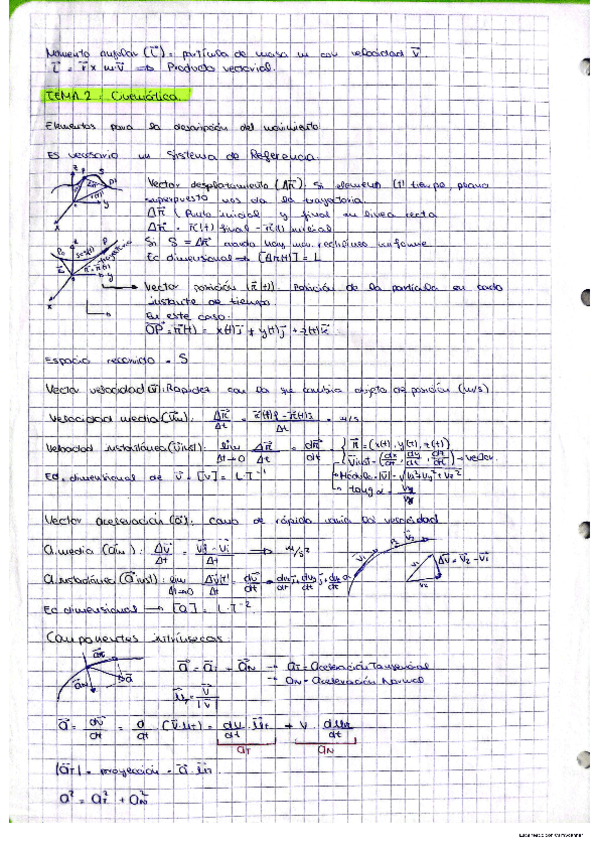 Momento angular (L⃗) = partícula de masa m con velocidad V⃗.
L⃗ = r⃗ x m·V⃗ ⇒ Producto vectorial.
TEMA 2: Cinemática.
Elementos para la descripción del movimiento
Es necesario un Sistema de Referencia.
Vector desplazamiento (Δr⃗): Si elemento (t) tiempo,
nos da la trayectoria.
Δr⃗ (Punto inicial y final en línea recta
Δr⃗ = r⃗(t) final - r⃗(t) inicial
Si S = Δr⃗ cuando hay mov. rectilíneo uniforme
Ec dimensional ⇒ [Δr(t)] = L
Vector posición (r⃗(t)): Posición de la partícula en cada
instante de tiempo
En este caso:
OP = r⃗(t) = x(t)i + y(t)j + z(t)k
Espacio recorrido = S
Vector velocidad (v⃗): Rapidez con la que cambia objeto de posición (m/s)
Velocidad media (v⃗m): Δr⃗/Δt = /Δt = m/s
Velocidad instantánea (v⃗inst): lim Δt→0 Δr⃗/Δt = dr⃗/dt
r⃗ = (x(t), y(t), z(t))
V⃗inst = (dx/dt, dy/dt, dz/dt) → vector.
Módulo = |v⃗| = √vx²+vy²+vz²
tang α = vy/vx
Ec. dimensional de v⃗ = [v] = L·T⁻¹
Vector aceleración (a⃗): como de rápido varía la velocidad
a media (a⃗m): Δv⃗/Δt = v⃗f - v⃗i/Δt → m/s²
Δv⃗ = v⃗2 - v⃗1
a instantánea (a⃗inst): lim Δt→0 Δv(t)/Δt = dv⃗/dt
Ec dimensional → [a] = L·T⁻²
Componentes intrínsecas
a⃗ = a⃗T - a⃗N → aT = Aceleración Tangencial
→ aN = Aceleración Normal
u⃗T = v⃗/|v⃗|
a⃗ = dv⃗/dt = d/dt (v·uT) = dv/dt · u⃗T + v · duT/dt
aT aN
|a⃗T| = proyección = a⃗·
a² = aT² + aN²